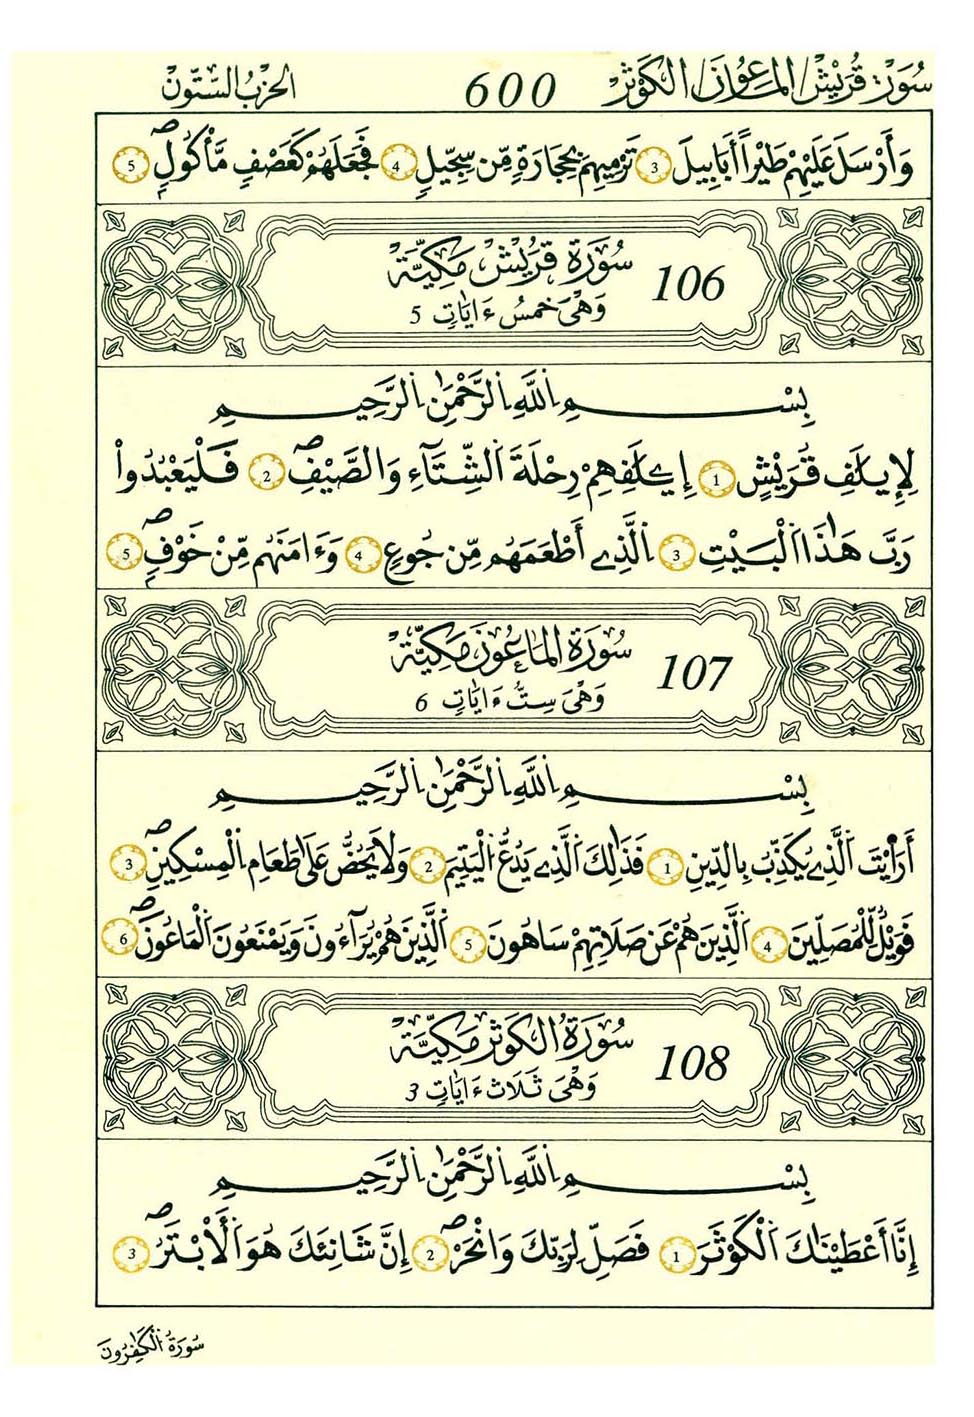 سُورَة قُرَيْش الماعون الكَوْثَر 600 الحِزْبُ السِّتُّونَ
وَأَرْسَلَ عَلَيْهِمْ طَيْراً أَبَابِيلَ 3 تَرْمِيهِم بِحِجَارَةٍ مِّن سِجِّيلٍ 4 فَجَعَلَهُمْ كَعَصْفٍ مَّأْكُولٍ 5
106 سُورَة قُرَيْش مَكِّيَّة
وَهْىَ خَمْسُ ءَايَاتٍ 5
بِسْمِ اللَّهِ الرَّحْمَٰنِ الرَّحِيمِ
لِإِيلَٰفِ قُرَيْشٍ 1 إِۦلَٰفِهِمْ رِحْلَةَ الشِّتَآءِ وَالصَّيْفِ 2 فَلْيَعْبُدُواْ
رَبَّ هَٰذَا الْبَيْتِ 3 الَّذِے أَطْعَمَهُم مِّن جُوعٍ 4 وَءَامَنَهُم مِّنْ خَوْفٍ 5
107 سُورَة المَاعُون مَكِّيَّة
وَهْىَ سِتُّ ءَايَاتٍ 6
بِسْمِ اللَّهِ الرَّحْمَٰنِ الرَّحِيمِ
أَرَٰيْتَ الَّذِے يُكَذِّبُ بِالدِّينِ 1 فَذَٰلِكَ الَّذِے يَدُعُّ الْيَتِيمَ 2 وَلَا يَحُضُّ عَلَىٰ طَعَامِ الْمِسْكِينِ 3
فَوَيْلٌ لِّلْمُصَلِّينَ 4 الَّذِينَ هُمْ عَن صَلَاتِهِمْ سَاهُونَ 5 الَّذِينَ هُمْ يُرَآءُونَ وَيَمْنَعُونَ الْمَاعُونَ 6
108 سُورَةُ الكَوْثَر مَكِّيَّة
وَهْىَ ثَلَاث ءَايَاتٍ 3
بِسْمِ اللَّهِ الرَّحْمَٰنِ الرَّحِيمِ
إِنَّا أَعْطَيْنَٰكَ الْكَوْثَرَ 1 فَصَلِّ لِرَبِّكَ وَانْحَرْ 2 إِنَّ شَانِئَكَ هُوَ الْأَبْتَرُ 3
سُورَةُ الْكَٰفِرُونَ